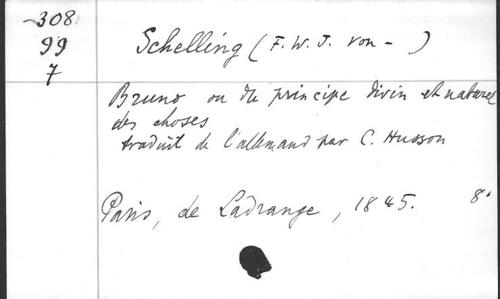 308
99
7
Schelling (F. W. J. von - )
Bruno ou du principe divin et naturel
des choses
traduit de l'allemand par C. Husson
Paris, de Ladrange, 1845. 8°